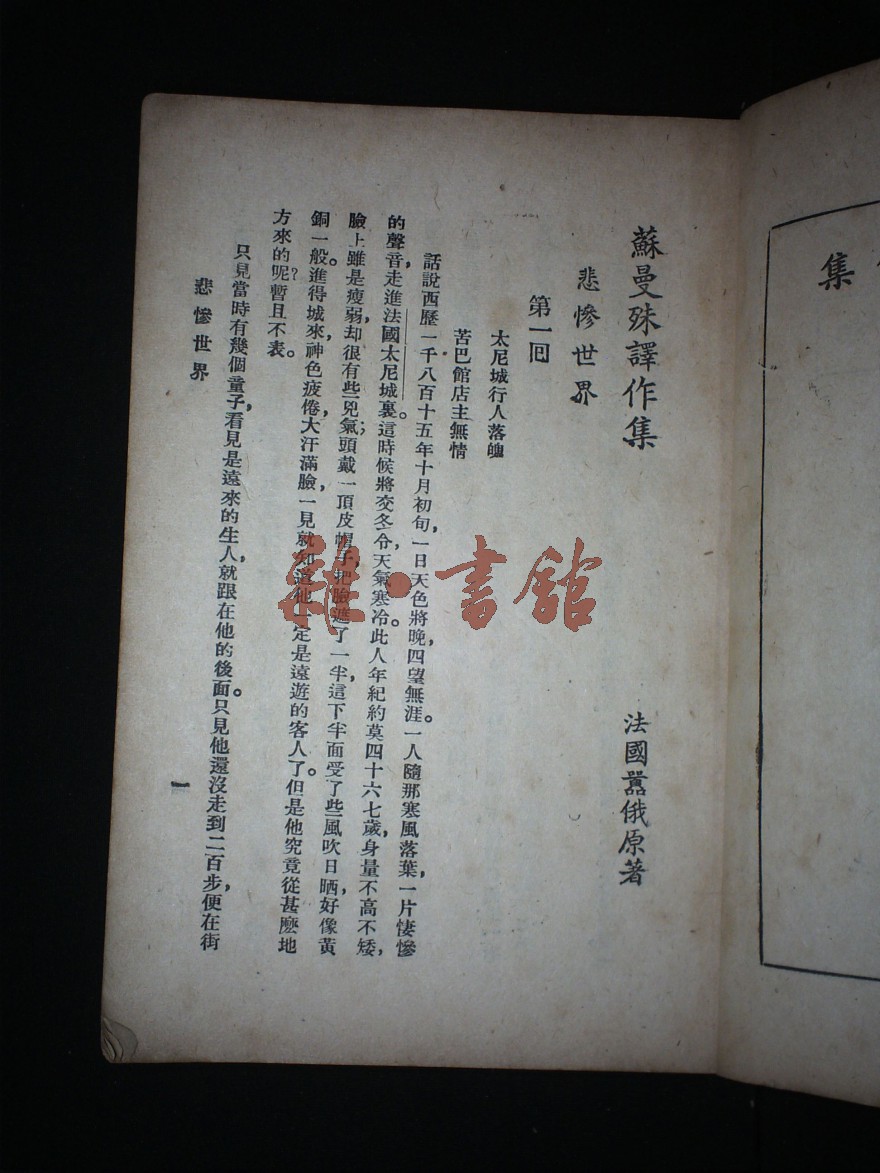 集
蘇曼殊譯作集
法國囂俄原著
悲慘世界
第一回
太尼城行人落魄
苦巴館店主無情
話說西歷一千八百十五年十月初旬，一日天色將晚，四望無涯。一人隨那寒風落葉，一片悽慘
的聲音，走進法國太尼城裏。這時候將交冬令，天氣寒冷。此人年紀約莫四十六七歲，身量不高不矮，
臉上雖是瘦弱，却很有些兇氣；頭戴一頂皮帽子，把臉遮了一半，這下半面受了些風吹日晒，好像黃
銅一般。進得城來，神色疲倦，大汗滿臉，一見就知道他一定是遠遊的客人了。但是他究竟從甚麽地
方來的呢？暫且不表。
只見當時有幾個童子，看見是遠來的生人，就跟在他的後面。只見他還沒走到二百步，便在街
悲慘世界
一
雜·書館